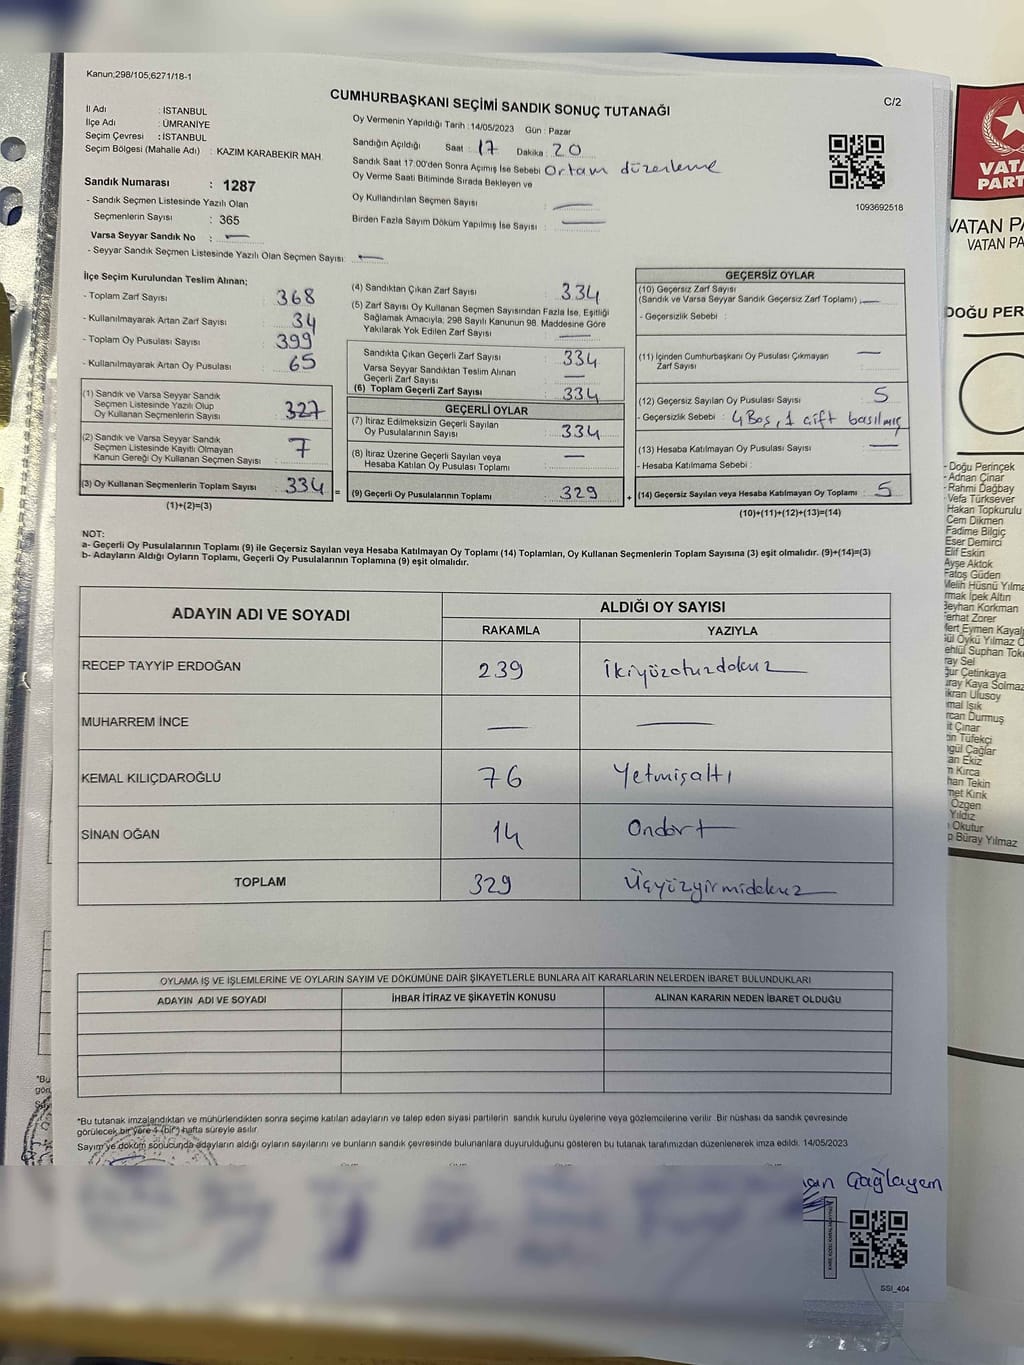 Kanun,298/105,6271/18-1
C/2
CUMHURBAŞKANI SEÇİMİ SANDIK SONUÇ TUTANAĞI
İl Adı : İSTANBUL
İlçe Adı : ÜMRANİYE
Seçim Çevresi : İSTANBUL
Seçim Bölgesi (Mahalle Adı) : KAZIM KARABEKİR MAH.
Sandık Numarası : 1287
- Sandık Seçmen Listesinde Yazılı Olan
Seçmenlerin Sayısı : 365
Varsa Seyyar Sandık No : —
- Seyyar Sandık Seçmen Listesinde Yazılı Olan Seçmen Sayısı: —
Oy Vermenin Yapıldığı Tarih : 14/05/2023 Gün : Pazar
Sandığın Açıldığı Saat : 17 Dakika : 20
Sandık Saat 17:00'den Sonra Açımış İse Sebebi Ortam düzenleme
Oy Verme Saati Bitiminde Sırada Bekleyen ve
Oy Kullandırılan Seçmen Sayısı : —
Birden Fazla Sayım Döküm Yapılmış İse Sayısı : —
1093692518
İlçe Seçim Kurulundan Teslim Alınan;
- Toplam Zarf Sayısı : 368
- Kullanılmayarak Artan Zarf Sayısı : 34
- Toplam Oy Pusulası Sayısı : 399
- Kullanılmayarak Artan Oy Pusulası : 65
(1) Sandık ve Varsa Seyyar Sandık
Seçmen Listesinde Yazılı Olup
Oy Kullanan Seçmenlerin Sayısı : 327
(2) Sandık ve Varsa Seyyar Sandık
Seçmen Listesinde Kayıtlı Olmayan
Kanun Gereği Oy Kullanan Seçmen Sayısı : 7
(3) Oy Kullanan Seçmenlerin Toplam Sayısı : 334 =
(1)+(2)=(3)
(4) Sandıktan Çıkan Zarf Sayısı : 334
(5) Zarf Sayısı Oy Kullanan Seçmen Sayısından Fazla İse, Eşitliği
Sağlamak Amacıyla, 298 Sayılı Kanunun 98. Maddesine Göre
Yakılarak Yok Edilen Zarf Sayısı : —
Sandıkta Çıkan Geçerli Zarf Sayısı : 334
Varsa Seyyar Sandıktan Teslim Alınan
Geçerli Zarf Sayısı : —
(6) Toplam Geçerli Zarf Sayısı : 334
GEÇERLİ OYLAR
(7) İtiraz Edilmeksizin Geçerli Sayılan
Oy Pusulalarının Sayısı : 334
(8) İtiraz Üzerine Geçerli Sayılan veya
Hesaba Katılan Oy Pusulası Toplamı : —
(9) Geçerli Oy Pusulalarının Toplamı : 329 +
GEÇERSİZ OYLAR
(10) Geçersiz Zarf Sayısı
(Sandık ve Varsa Seyyar Sandık Geçersiz Zarf Toplamı) : —
- Geçersizlik Sebebi :
(11) İçinden Cumhurbaşkanı Oy Pusulası Çıkmayan
Zarf Sayısı : —
(12) Geçersiz Sayılan Oy Pusulası Sayısı : 5
- Geçersizlik Sebebi : 4 Boş, 1 çift basılmış
(13) Hesaba Katılmayan Oy Pusulası Sayısı : —
- Hesaba Katılmama Sebebi :
(14) Geçersiz Sayılan veya Hesaba Katılmayan Oy Toplamı : 5
(10)+(11)+(12)+(13)=(14)
NOT:
a- Geçerli Oy Pusulalarının Toplamı (9) ile Geçersiz Sayılan veya Hesaba Katılmayan Oy Toplamı (14) Toplamları, Oy Kullanan Seçmenlerin Toplam Sayısına (3) eşit olmalıdır. (9)+(14)=(3)
b- Adayların Aldığı Oyların Toplamı, Geçerli Oy Pusulalarının Toplamına (9) eşit olmalıdır.
ADAYIN ADI VE SOYADI
ALDIĞI OY SAYISI
RAKAMLA YAZIYLA
RECEP TAYYİP ERDOĞAN 239 İkiyüzotuzdokuz
MUHARREM İNCE — —
KEMAL KILIÇDAROĞLU 76 Yetmişaltı
SİNAN OĞAN 14 Ondört
TOPLAM 329 Üçyüzyirmidokuz
OYLAMA İŞ VE İŞLEMLERİNE VE OYLARIN SAYIM VE DÖKÜMÜNE DAİR ŞİKAYETLERLE BUNLARA AİT KARARLARIN NELERDEN İBARET BULUNDUKLARI
ADAYIN ADI VE SOYADI İHBAR İTİRAZ VE ŞİKAYETİN KONUSU ALINAN KARARIN NEDEN İBARET OLDUĞU
*Bu tutanak imzalandıktan ve mühürlendikten sonra seçime katılan adayların ve talep eden siyasi partilerin sandık kurulu üyelerine veya gözlemcilerine verilir. Bir nüshası da sandık çevresinde
görülecek bir yere 1 (bir) hafta süreyle asılır.
Sayım ve döküm sonucunda adayların aldığı oyların sayılarını ve bunların sandık çevresinde bulunanlara duyurulduğunu gösteren bu tutanak tarafımızdan düzenlenerek imza edildi. 14/05/2023
Çağlayan
SSI_404
VATA
PART
VATAN PA
VATAN PA
DOĞU PER
- Doğu Perinçek
- Adnan Çınar
- Rahmi Dağbay
- Vefa Türksever
Hakan Topkurulu
Cem Dikmen
Fadime Bilgiç
Eser Demirci
Elif Eskin
Ayşe Aktok
Fatoş Güden
Melih Hüsnü Yılma
rmak İpek Altın
Beyhan Korkman
Ferhat Zorer
Mert Eymen Kayal
ül Öykü Yılmaz
ehlül Suphan Tok
ray Sel
ğur Çetinkaya
uray Kaya Solmaz
ikran Ulusoy
mal Işık
rcan Durmuş
it Çınar
in Tüfekçi
ngül Çağlar
an Ekiz
n Kırca
han Tekin
met Kırık
Özgen
Yıldız
Okutur
p Büray Yılmaz